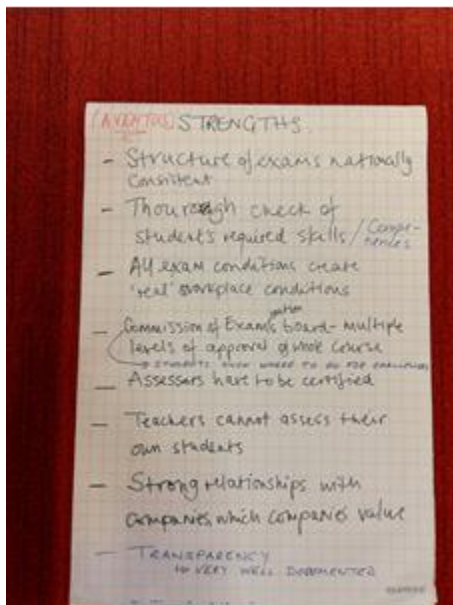 STRENGTHS.
- Structure of exams nationally
consistent
- Thourough check of
student's required skills / Compe-
tences
- All exam conditions create
'real' workplace conditions
- Commission of Examination board - multiple
levels of approval of whole course
→ STUDENTS KNOW WHERE TO GO FOR
- Assessers have to be certified
- Teachers cannot assess their
own students
- Strong relationships with
companies, which companies value
- TRANSPARENCY
↳ VERY WELL DOCUMENTED